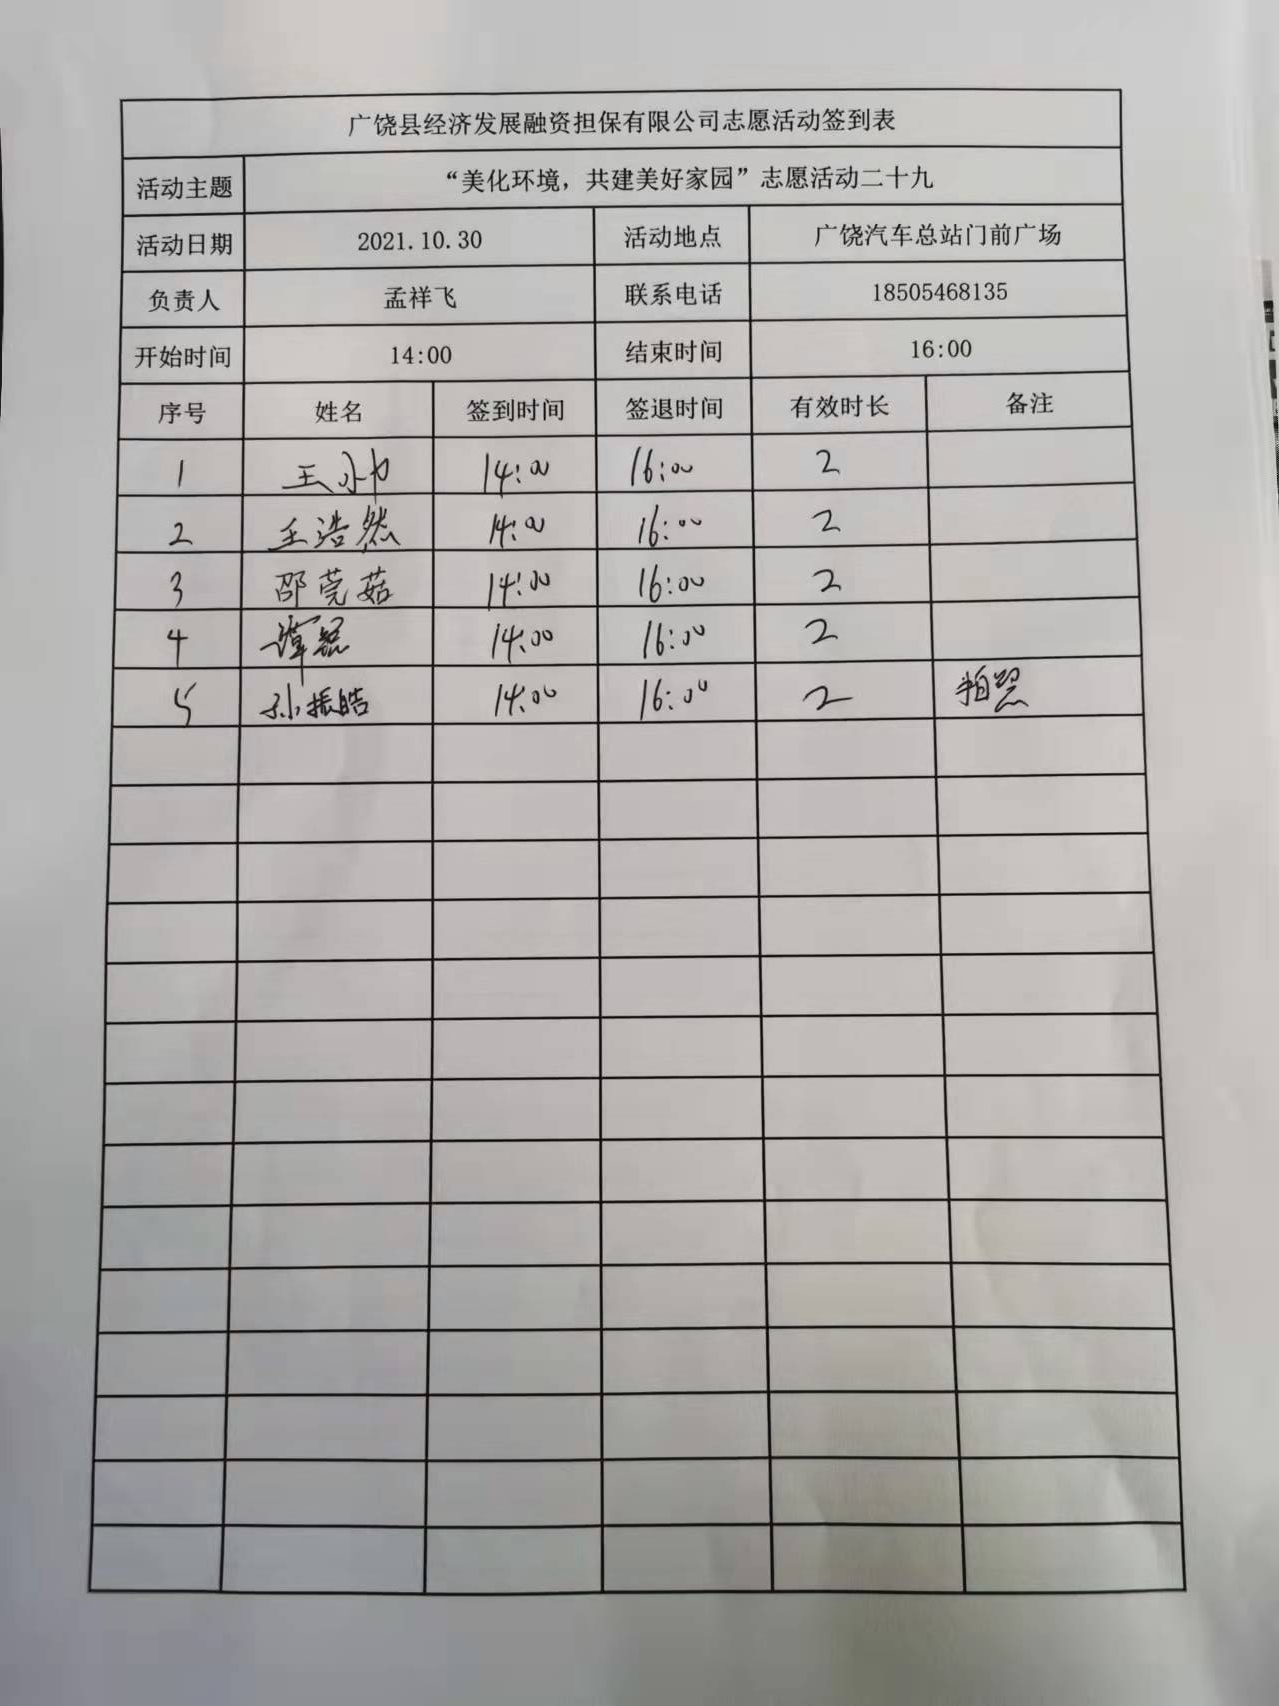 广饶县经济发展融资担保有限公司志愿活动签到表
活动主题 “美化环境，共建美好家园”志愿活动二十九
活动日期 2021.10.30 活动地点 广饶汽车总站门前广场
负责人 孟祥飞 联系电话 18505468135
开始时间 14:00 结束时间 16:00
序号 姓名 签到时间 签退时间 有效时长 备注
1 王 14:00 16:00 2
2 王浩然 14:00 16:00 2
3 邵莞茹 14:00 16:00 2
4 谭磊 14:00 16:00 2
5 孙振皓 14:00 16:00 2 拍照